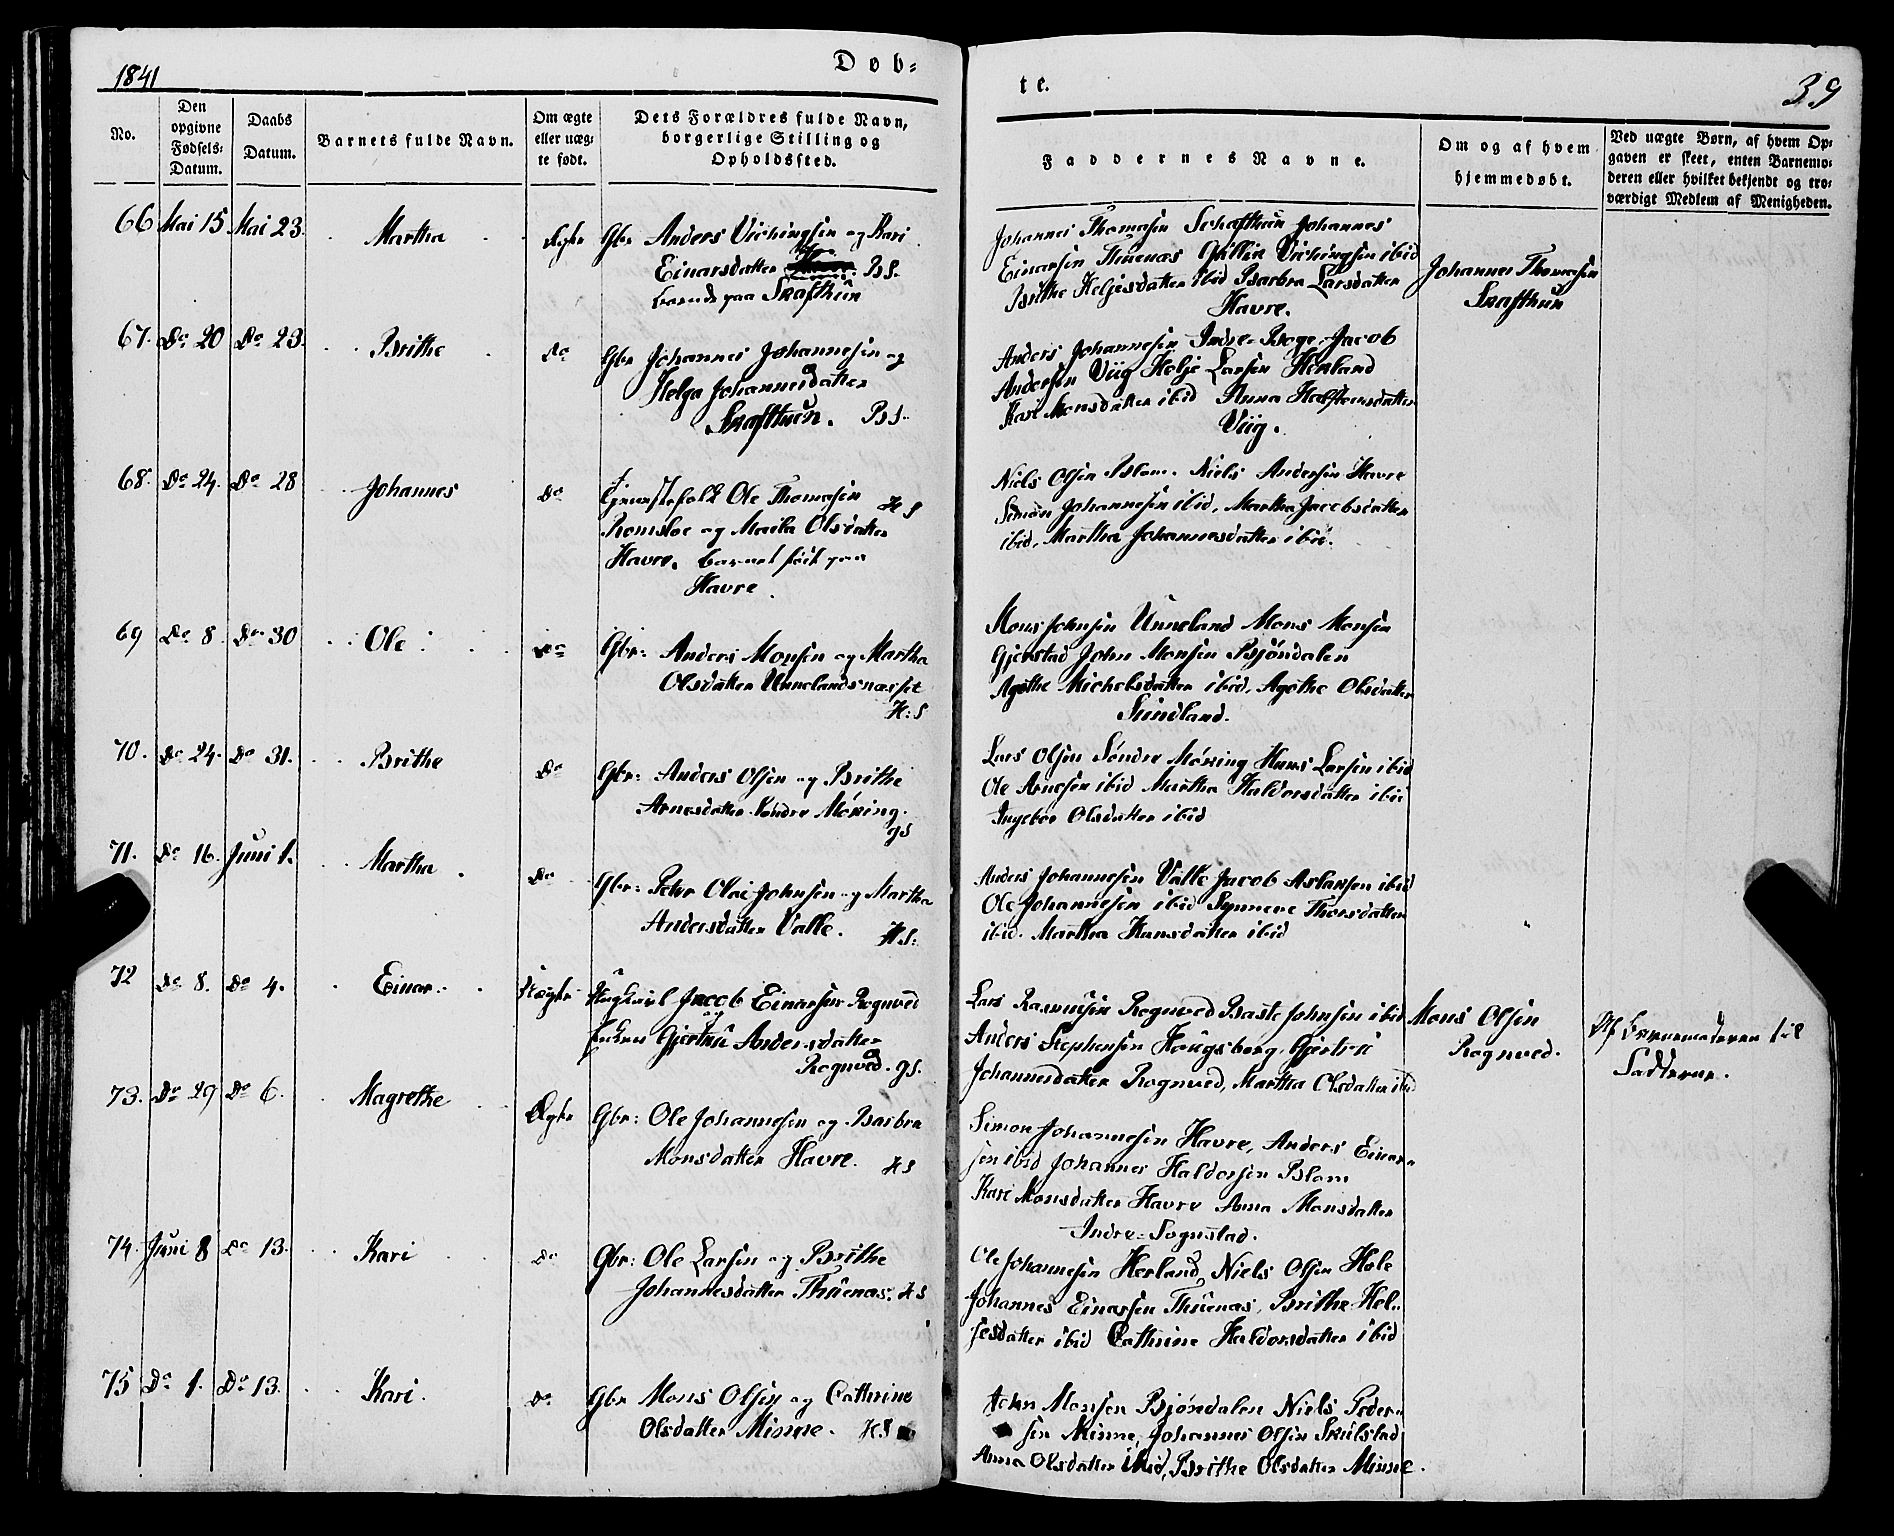 1841
Døb=
No.
Den opgivne Fødsels-Datum.
Daabs Datum.
Barnets fulde Navn.
Om ægte eller uæg-te født.
Dets Forældres fulde Navn, borgerlige Stilling og Opholdssted.
66 Mai 15. Mai 23. Martha Ægte Gbr Anders Vichingsen og Kari
Einarsdatter BS.
paa Skafthun
67. Do 20 Do 23. Brithe Do Gbr Johannes Johannesen og
Helga Johannesdatter
Skafthun. BS.
68. Do 24. Do 28 Johannes Do Tjenestefolk Ole Thomasen HS
Romsloe og Marta Olsdatter
Havre. barnet født paa
Havre.
69 Do 8. Do 30 Ole Do Gbr: Anders Monsen og Martha
Olsdatter Unnelandsnæsset
H:S
70. Do 24. Do 31. Brithe Do Gbr: Anders Olsen og Brithe
Arnesdatter Søndre Møring.
gS
71. Do 16. Juni 1. Martha Do Gbr: Peder Olai Johnsen og Martha
Andersdatter Valle. HS:
72 Do 8. Do 4. Einar Uægte Ungkarl Jacob Einarsen Rognved
og
Gjertru Andersdatter
Rognved. gS.
73. Do 29 Do 6. Magrethe Ægte Gbr: Ole Johannesen og Barbra
Monsdatter Havre. HS
74. Juni 8 Do 13. Kari Do Gbr: Ole Larsen og Brithe
Johannesdatter Thuenæs. HS
75 Do 1. Do 13. Kari. Do Gbr Mons Olsen og Cathrine
Olsdatter Minne. HS
te.
39
Faddernes Navne.
Om og af hvem hjemmedøbt.
Ved uægte Børn, af hvem Op-
gaven er skeet, enten Barnemo-
deren eller hvilket bekjendt og tro-
værdigt Medlem af Menigheden.
Johannes Thomasen Schafthun Johannes
Einarsen Thuenæs Gullin Vichingsen ibid
Brithe Heljesdatter ibid Barbra Larsdatter
Havre.
Johannes Thomasen
Skafthun
Anders Johannesen Indre-Boge Jacob
Andersen Viig Helje Larsen Herland
Kari Monsdatter ibid Anna Halsteensdatter
Viig.
Niels Olsen Blom. Niels Andersen Havre
Simon Johannesen ibid, Martha Jacobsdatter
ibid, Martha Johannesdatter ibid.
Mons Johnsen Unneland Mons Monsen
Gjerstad John Monsen Bjøndalen
Agethe Michelsdatter ibid, Agethe Olsdatter
Sundland.
Lars Olsen Søndre Møring Hans Larsen ibid
Ole Arnesen ibid Martha Haldorsdatter ibid
Ingebor Olsdatter ibid
Anders Johannesen Valle Jacob Aslaksen ibid
Ole Johannesen ibid Synneve Thorsdatter
ibid. Martha Hansdatter ibid
Lars Rasmusen Rognved Baste Johnsen ibid
Anders Stephensen Hougsberg, Gjertru
Johannesdatter Rognved, Martha Olsdatter ibid
Mons Olsen
Rognved.
Af Barnemoderen til
Fadderne.
Simon Johannesen Havre, Anders Einar-
sen ibid Johannes Haldorsen Blom
Kari Monsdatter Havre Anna Monsdatter
Indre-Sognstad.
Ole Johannesen Herland, Niels Olsen Hole
Johannes Einarsen Thuenæs, Brithe Hel-
jesdatter ibid Cathrine Haldorsdatter ibid
John Monsen Bjøndalen Niels Peder-
sen Minne, Johannes Olsen Skulstad
Anna Olsdatter ibid, Brithe Olsdatter Minne.